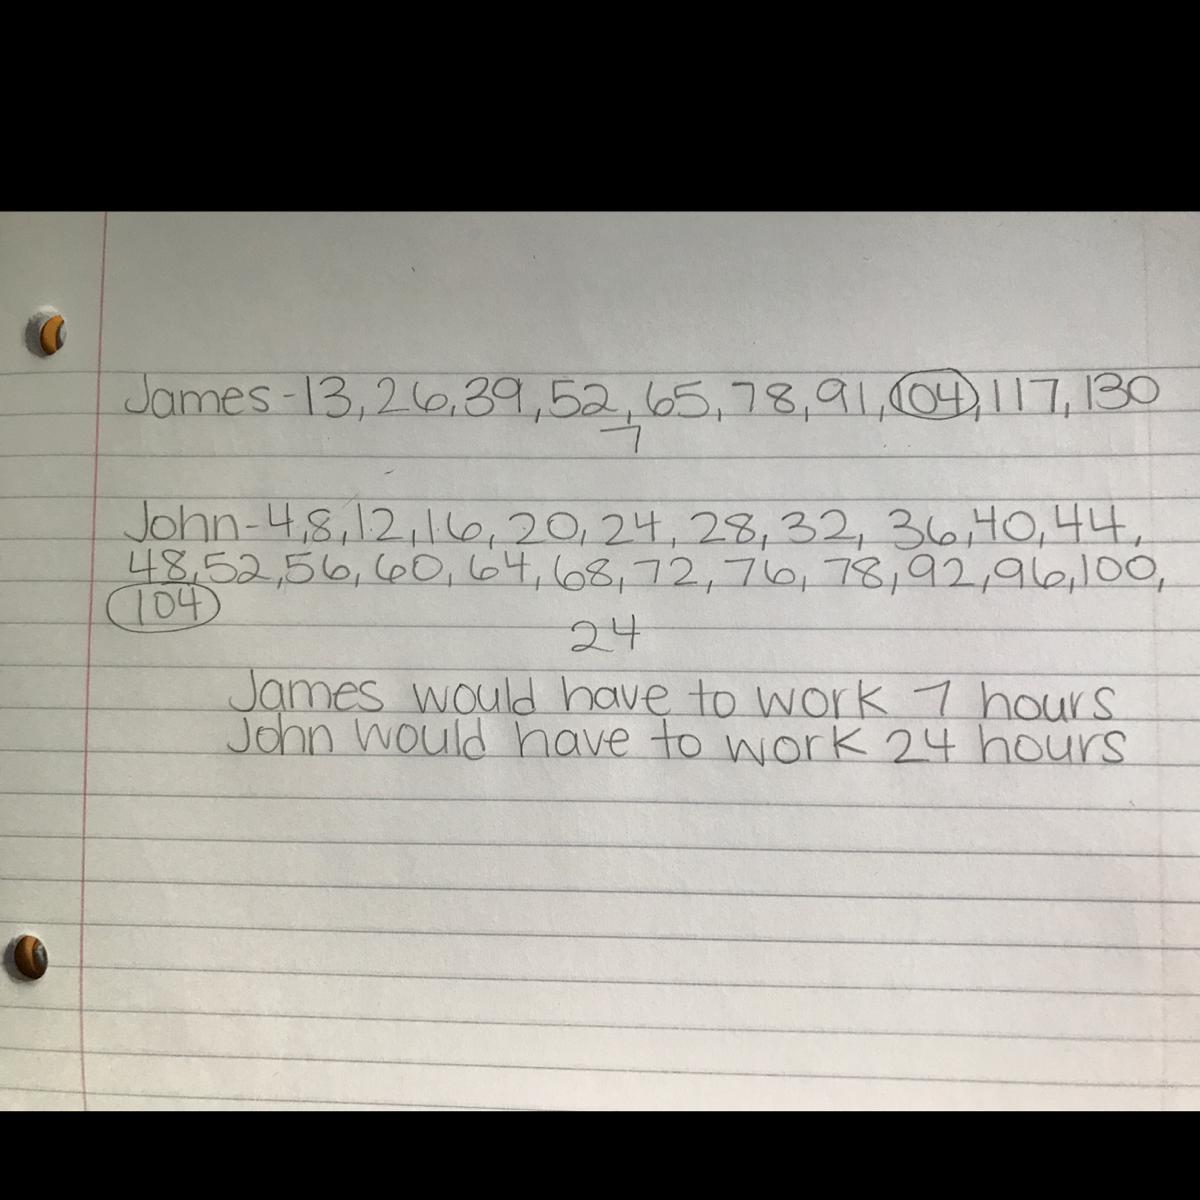 James - 13, 26, 39, 52, 65, 78, 91, 104, 117, 130
7
John - 4, 8, 12, 16, 20, 24, 28, 32, 36, 40, 44,
48, 52, 56, 60, 64, 68, 72, 76, 78, 92, 96, 100,
104
24
James would have to work 7 hours
John would have to work 24 hours